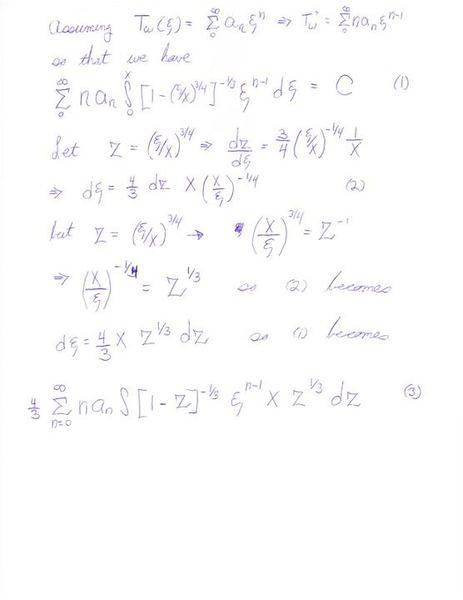 Assuming T_w(ξ) = ∑_0^∞ a_n ξ^n ⇒ T_w' = ∑_0^∞ n a_n ξ^{n-1}
so that we have
∑_0^∞ n a_n ∫_0^x [1-(ξ/x)^{3/4}]^{-1/3} ξ^{n-1} dξ = C (1)
Let Z = (ξ/x)^{3/4} ⇒ dz/dξ = 3/4 (ξ/x)^{-1/4} 1/x
⇒ dξ = 4/3 dz x (x/ξ)^{-1/4} (2)
but Z = (ξ/x)^{3/4} → (x/ξ)^{3/4} = Z^{-1}
⇒ (x/ξ)^{-1/4} = Z^{1/3} so (2) becomes
dξ = 4/3 x Z^{1/3} dz so (1) becomes
4/3 ∑_{n=0}^∞ n a_n ∫ [1-Z]^{-1/3} ξ^{n-1} x Z^{1/3} dz (3)